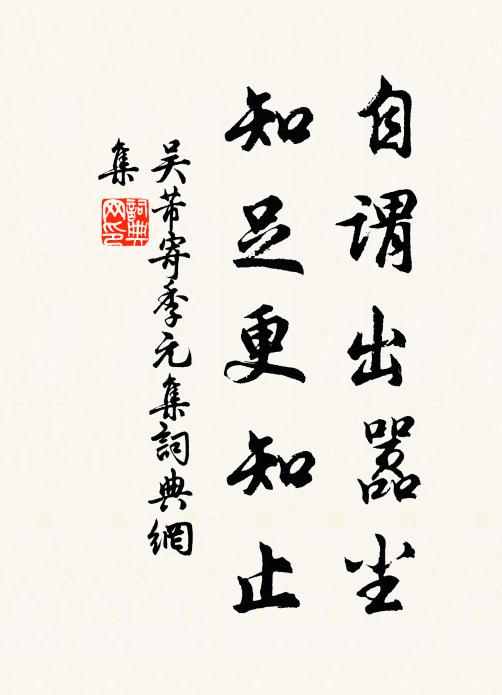 自謂出囂尘
知足更知止
吴芾寄季元集詞典網
集
詞典网印